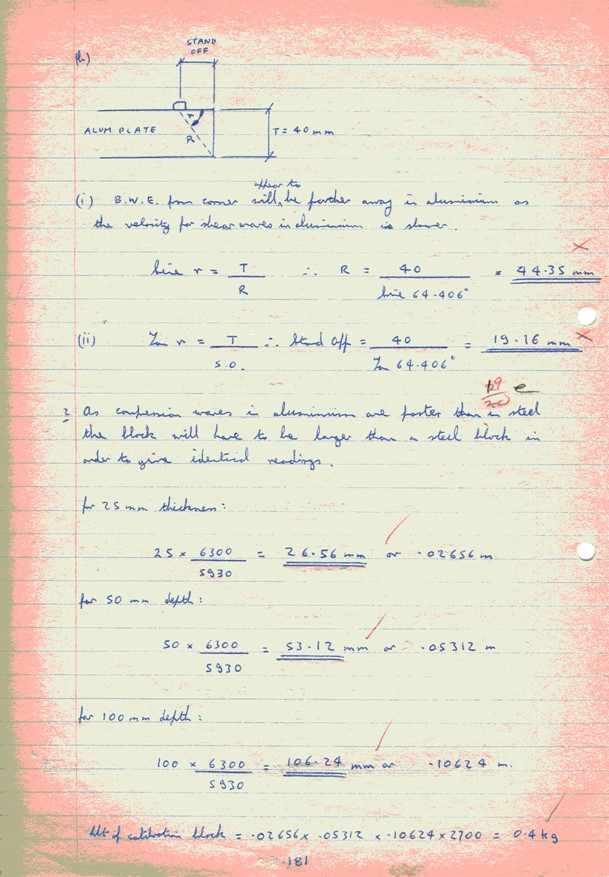 (b)
STAND
OFF
ALUM PLATE
r
R
T = 40 mm
appear to
(i) B.W.E. from corner will be further away in aluminium as
the velocity for shear waves in aluminium is slower.
Sine r = T / R ∴ R = 40 / Sine 64.406° = 44.35 mm
(ii) Tan r = T / S.O. ∴ Stand Off = 40 / Tan 64.406° = 19.16 mm
19/20
2 As compression waves in aluminium are faster than in steel
the block will have to be larger than a steel block in
order to give identical readings.
for 25 mm thickness:
25 × 6300 / 5930 = 26.56 mm or .02656 m
for 50 mm depth:
50 × 6300 / 5930 = 53.12 mm or .05312 m
for 100 mm depth:
100 × 6300 / 5930 = 106.24 mm or .10624 m.
Wt of calibration block = .02656 × .05312 × .10624 × 2700 = 0.4 kg
181